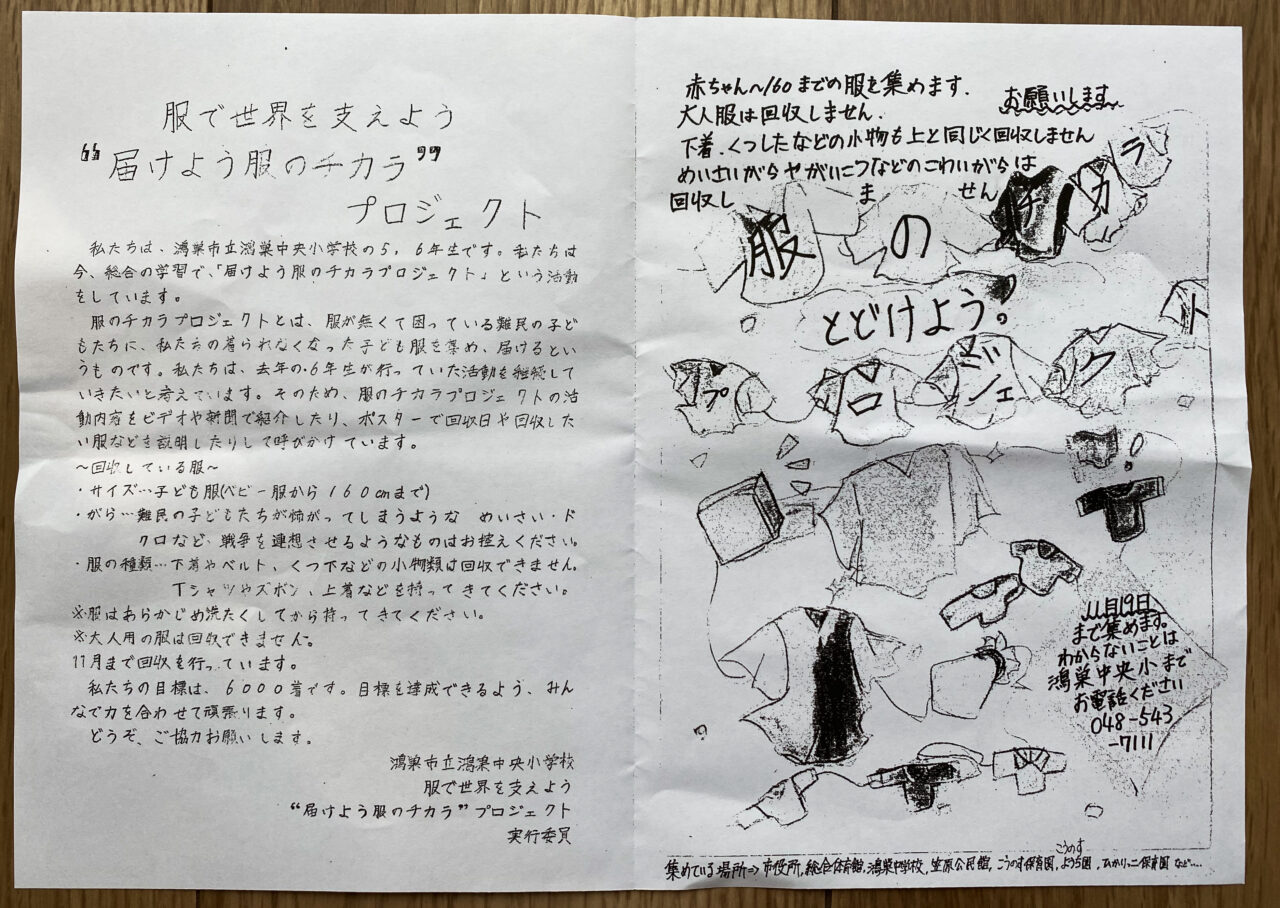 服で世界を支えよう
“届けよう服のチカラ”
プロジェクト
私たちは、鴻巣市立鴻巣中央小学校の5，6年生です。私たちは
今、総合の学習で、「届けよう服のチカラプロジェクト」という活動
をしています。
服のチカラプロジェクトとは、服が無くて困っている難民の子ど
もたちに、私たちの着られなくなった子ども服を集め、届けるとい
うものです。私たちは、去年の6年生が行っていた活動を継続して
いきたいと考えています。そのため、服のチカラプロジェクトの活
動内容をビデオや新聞で紹介したり、ポスターで回収日や回収した
い服などを説明したりして呼びかけています。
～回収している服～
・サイズ…子ども服(ベビー服から160cmまで)
・がら…難民の子どもたちが怖がってしまうような めいさい・ド
クロなど、戦争を連想させるようなものはお控えください。
・服の種類…下着やベルト、くつ下などの小物類は回収できません。
Tシャツやズボン、上着などを持ってきてください。
※服はあらかじめ洗たくしてから持ってきてください。
※大人用の服は回収できません。
11月まで回収を行っています。
私たちの目標は、6000着です。目標を達成できるよう、みん
なで力を合わせて頑張ります。
どうぞ、ご協力お願いします。
鴻巣市立鴻巣中央小学校
服で世界を支えよう
“届けよう服のチカラ”プロジェクト
実行委員
赤ちゃん～160までの服を集めます.
お願いします
大人服は回収しません.
下着.くつしたなどの小物も上と同じく回収しません
めいさいがらやがいこつなどのこわいがらは
回収しません
服のチカラ
とどけよう。
プロジェクト
!
11月19日
まで集めます。
わからないことは
鴻巣中央小まで
お電話ください
048-543
-7111
こうのす
集めている場所⇒市役所,総合体育館,鴻巣中学校,笠原公民館,こうのす保育園,ようち園,ひかりっこ保育園 など....